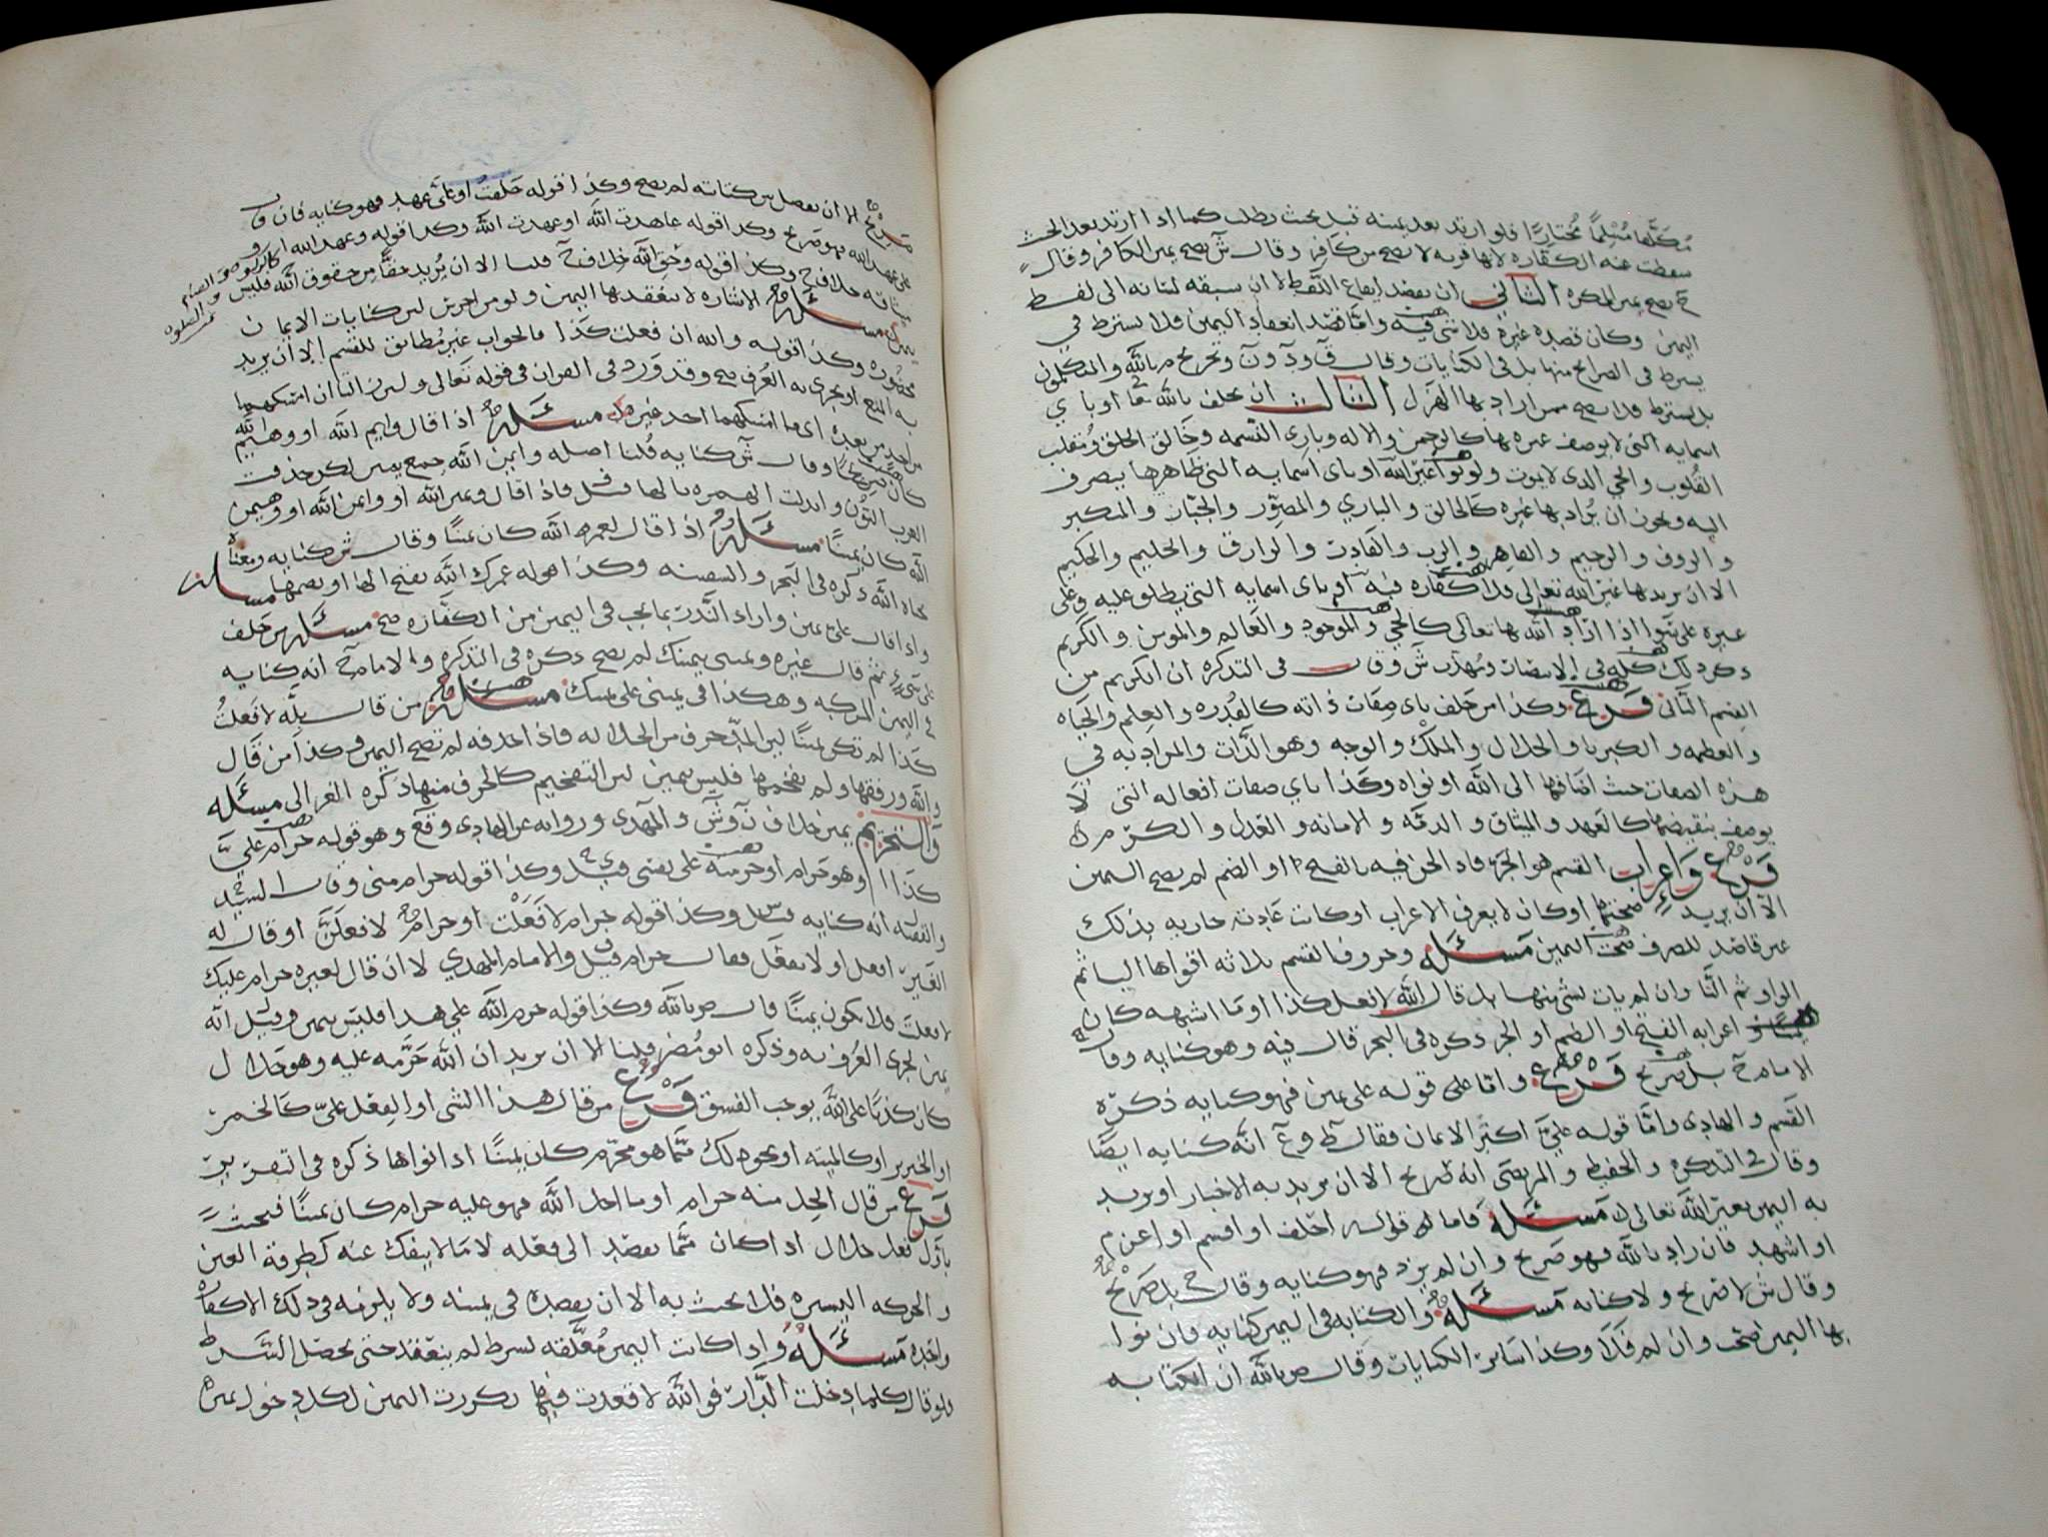 مُكَلَّفا مُسْلِمًا مُختارًا فلو ارتد بعد يمينه قبل يحنث بطلت كما اذا ارتد بعد الحنث
سقطت عنه الكفاره لانها قربه لا تصح من كافر وقال ش تصح يمين الكافر وقال
ح تصح يمين المكره الثاني ان يقصد ايقاع اللفظ لا ان سبقه لسانه الى لفظ
اليمين وكان قصده غيره فلا شي فيه واما قصد انعقاد اليمين فلا يشترط في
يشترط فى الصرائح منها بل فى الكنايات وقال
بل يشترط فلا تصح ممن اراد بها الهزل الثالث ان يحلف بالله تعا او باي
اسمايه التى لا يوصف غيره بها كالرحمن والاله وباري النسمه وخالق الخلق ومقلب
القُلوب والحي الذى لا يموت ولو نوا غير الله او باى اسمايه التى ظاهرها ينصرف
اليه ويجوز ان يُراد بها غيره كالخالق والباري والمصوِّر والجبار والمتكبر
والروف والرحيم والقاهر والرب والقادر والرازق والحليم والحكيم
الا ان يريد بها غير الله تعالى فلا كفاره فيه او باى اسمايه التى يطلق عليه وعلى
غيره على سَوا اذا اراد الله بها تعالى كالحي والموجود والعالم والمومن والكريم
ذكر ذلك كله في الانتصار ومهذب ش وقال فى التذكره ان الكريم من
القسم الثانى فرع وكذا من حلف باى صفات ذاته كالقُدره والعِلم والحياه
والعظمه والكبريا والجلال والملك والوجه وهو الذات والمراد به في
هذه الصفات حيث اضافها الى الله او نواه وكذا باي صفات افعاله التى لا
يوصف بنقيضها كالعهد والميثاق والذمه والامانه والعدل والكرم
فرع واعراب القسم هو الجر فاذا لحن فيه بالفتح او الضم لم تصح اليمين
الا ان يريد صحتها او كان لا يعرف الاعراب او كانت عادته جاريه بذلك
غير قاصد للصرف صحت اليمين مسئله وحروف القسم ثلاثه اقواها البا ثم
الواو ثم التا وان لم يات بشى منها بل قال الله لافعل كذا او ما اشبهه كان
يمينا اعرابه الفتح او الضم او الجر ذكره فى البحر قال فيه وهو كنايه وقال
الامام ح بل صريح فرع واما على قوله على يمين فهو كنايه ذكره
القسم والهادى واما قوله عليَّ اكثر الايمان فقال ط و ع انه كنايه ايضًا
وقال فى التذكره والحفيظ والمرتضى انه صريح الا ان يريد به الاخبار او يريد
به اليمين بغير الله تعالى مسئله فاما قوله احلف او اقسم او اعزم
او اشهد فان زاد بالله فهو صريح وان لم يزد فهو كنايه وقال ح بل صريح
وقال ش لا صريح ولا كنايه مسئله والكتابه فى اليمين كنايه فان نوا
بها اليمين صحت وان لم فلا وكذا سائر الكنايات وقال ص بالله ان الكتابه
صريح الا ان يفصل بين كتابته لم تصح وكذا قوله حَلفتُ او عليَّ عهد فهو كنايه فان قال
على عهد الله فهو صريح وكذا قوله عاهدت الله او عهدت الله وكذا قوله وعهد الله او
ميثاقه خلاف ح وكذا قوله وحق الله خلاف ح قلنا الا ان يُريد حقًا من حقوق الله فليس
يمين مسئله الاشاره لا تنعقد بها اليمين ولو من اخرس لان كنايات الايمان
محصُوره وكذا قوله والله ان فعلت كذا فالجواب غير مُطابق للقسم الا ان يريد
به النفي او يجرى به العُرف صح وقد وَرَد فى القران فى قوله تعالى ولئن زالتا ان امسكهما
من احد من بعده اى ما امسكهما احد غيره مسئله اذا قال وايم الله او وهيم الله
كان صريحًا وقال ش كنايه قُلنا اصله وايمن الله جمع يمين لكن حذفت
العرب النُّون وابدلت الهمزه بالها فاذا قال ويمين الله او وايمن الله او وهيمن
الله كان يمينًا مسئله اذا قال لعمر الله كان يمينًا وقال ش كنايه ومعناه
بحياه الله ذكره فى البحر والسفينه وكذا قوله عمرك الله بفتح الها او بضمها مسئله
واذا قال علىَّ يمين واراد النَّذر بما يجب فى اليمين من الكفاره صح مسئله من حلف
على شىءٍ ثم قال غيره ويمينى يمينك لم يصح ذكره فى التذكره والامام ح انه كنايه
فى اليمين المركبه وهكذا فى يمينى على يمينك مسئله من قال بِلَّه لا فَعلتُ
كذا لم تكن يمينًا لان المدّ حرف من الجلاله فاذا حذفه لم تصح اليمين وكذا من قال
والله ورققها ولم يفخمها فليس بيمين لان التفخيم كالحرف منها ذكره الغزالى مسئله
والتحريم يمين خلاف ن و ش والمهدى وروايه عن الهادى و ق و ع وهو قوله حرام عليَّ
كذا او هو حرام او حرمته على نفسى قيل وكذا قوله حرام منى وقال السيد
والفقيه انه كنايه وكذا قوله حرام لا فَعَلْت او حرام لافعلَنَّ او قال له
الغير افعل او لا تفعل فقال حرام قيل والامام المهدي لا ان قال لغيره حرام عليك
لا فعلت فلا يكون يمينًا قال ص بالله وكذا قوله حرم الله علي هذا فليس بيمين وقيل انه
يمين لجرى العُرف به وذكره ابو مُضر قلنا الا ان يريد ان الله حَرَّمه عليه وهو حلال
كان كذبًا على الله يوجب الفسق فرع من قال هذا الشى او الفعل عليّ كالخمر
او الخنزير او كالميته او نحو ذلك مما هو محرم كان يمينًا اذا نواها ذكره فى التقرير
فرع من قال الحِل منه حرام او ما احل الله فهو عليه حرام كان يمينًا فيحنث
باول فعل حلال اذا كان مما يقصد الى فعله لا ما لا ينفك عنه كطرفة العين
والحركه اليسيره فلا يحنث به الا ان يقصده فى يمينه ولا يلزمه فى ذلك الا كفاره
واحده مسئله واذا كانت اليمين مُعلقه لشرط لم ينعقد حتى يحصل الشرط
فلو قال كلما دخلت الدار فوالله لا قعدت فيها تكررت اليمين لكل دخول يمين